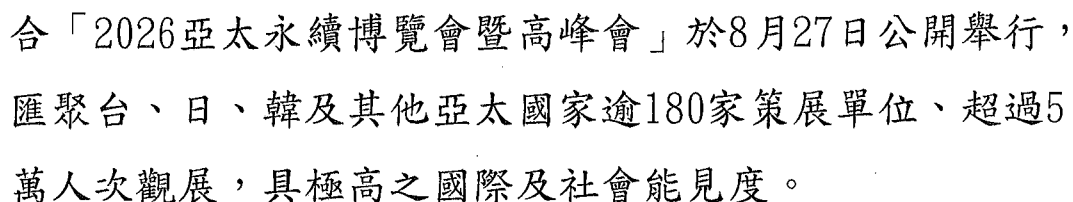 合「2026亞太永續博覽會暨高峰會」於8月27日公開舉行，
匯聚台、日、韓及其他亞太國家逾180家策展單位、超過5
萬人次觀展，具極高之國際及社會能見度。